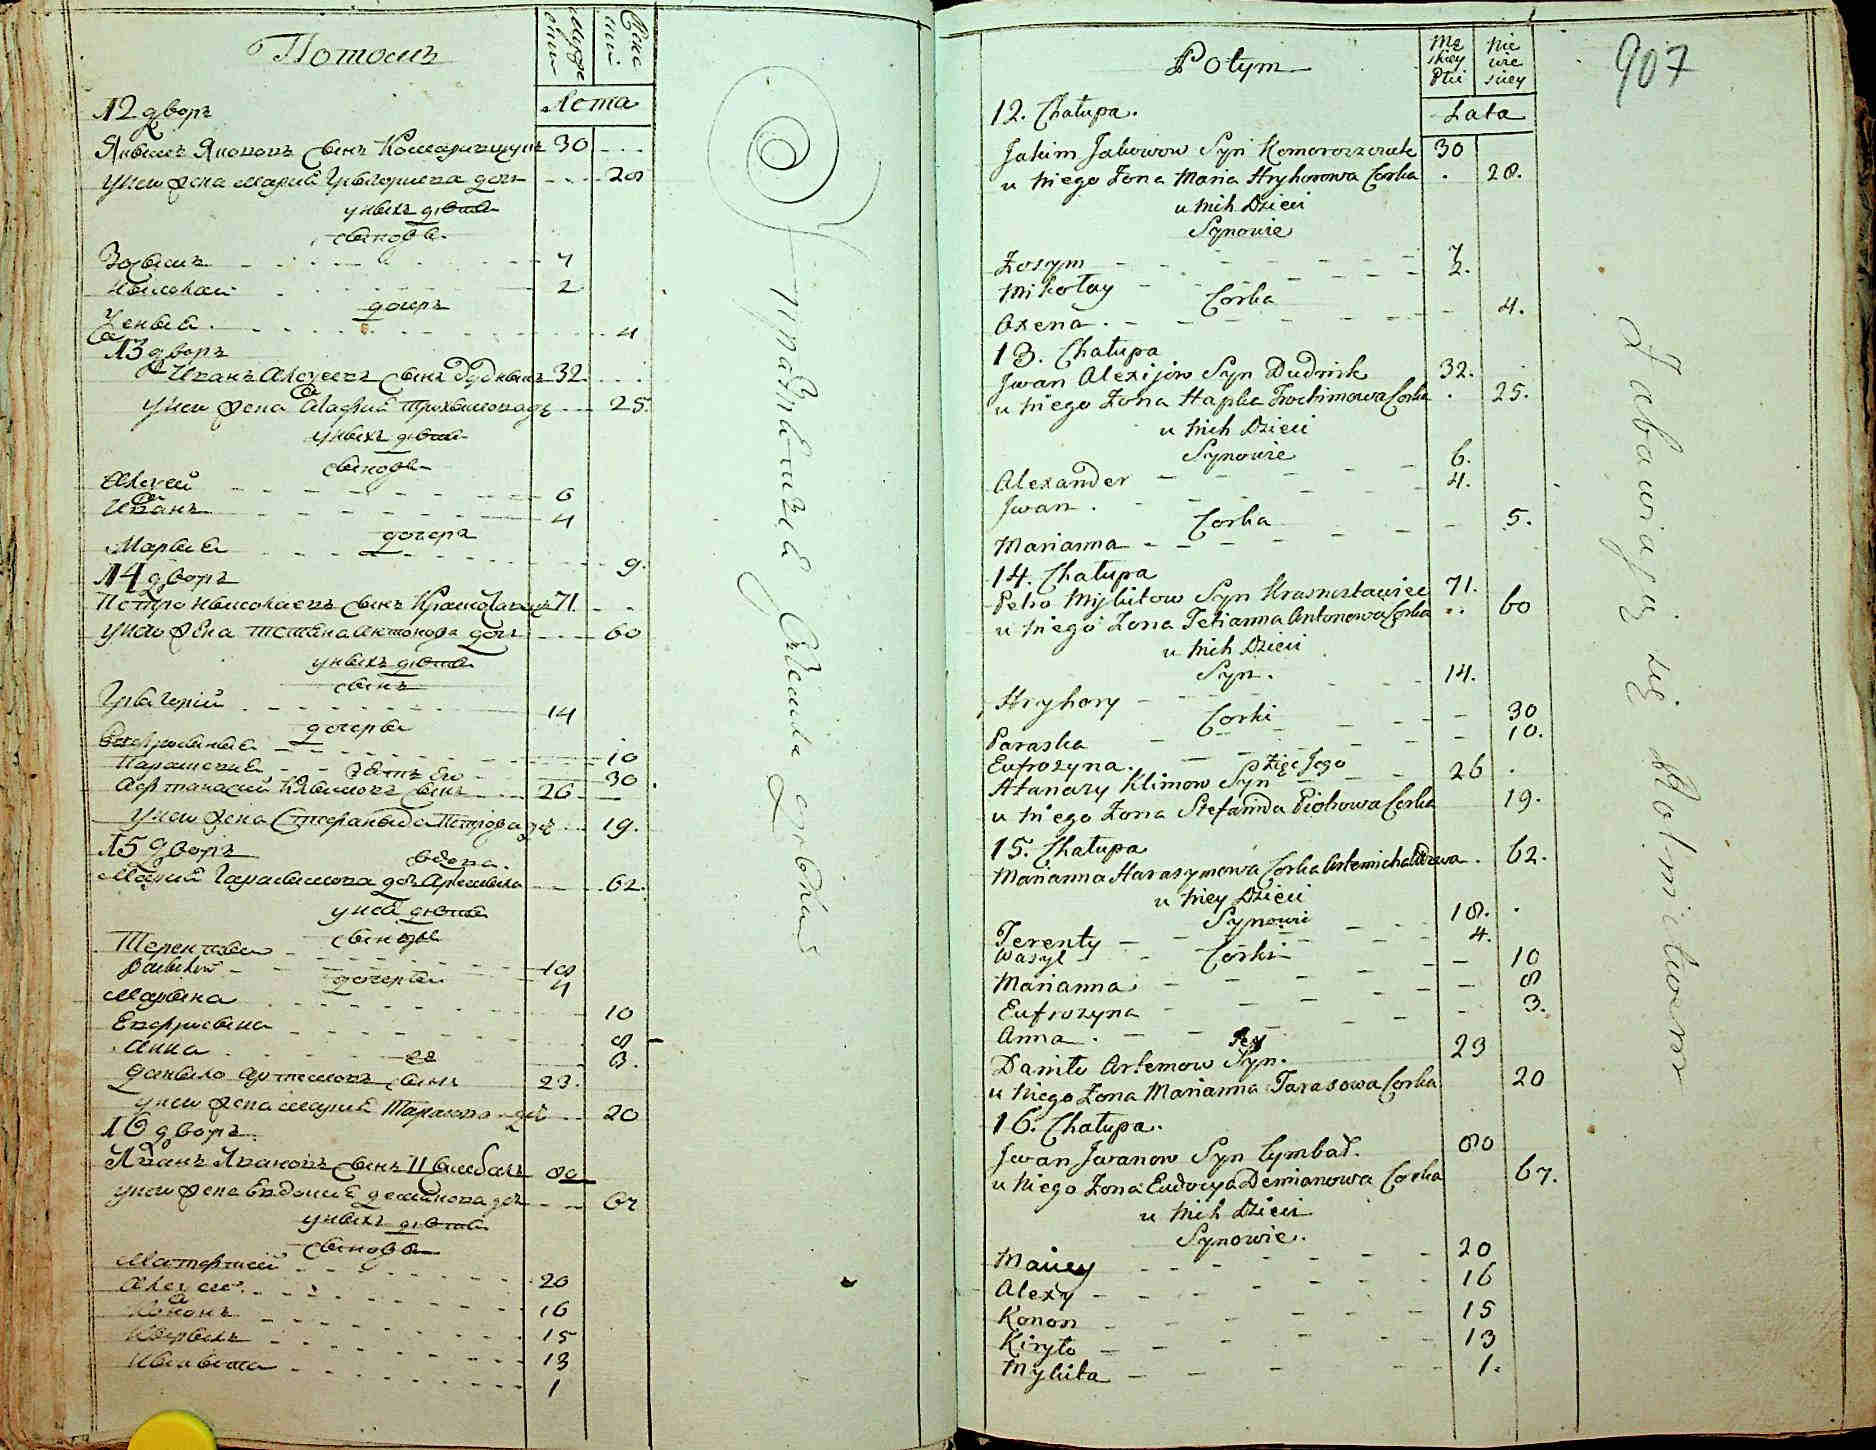 Потомъ
Лета
12 дворъ
Якимъ Яковов сынъ 30
у него жена Мария Григориева доч 28
у нихъ дети
сынове
Зосимъ 7
Николай 2
дочеръ
Ксения 4
13 дворъ
Иванъ Алексеевъ сынъ Дудникъ 32
у него жена Агафия Трихимова дч 25
у нихъ дети
сынове
Алексей 6
Иванъ 4
дочеръ
Мария 9
14 дворъ
Петро Николаевъ сынъ 71
у него жена Тетяна Антонова доч 60
у нихъ дети
сынъ
Григорий 14
дочери
Евфросиния 10
Парашкевия 30
зять его
Афтанасий Климовъ сынъ 26
у него жена Стефанида Петрова дч 19
15 дворъ
вдова
Мария Гарасимова доч 62
у ней дети
сынове
Терентий 18
Василий 4
дочери
Марина 10
Евфросина 8
Анна 3
ее
Данило Артемовъ сынъ 23
у него жена Мария Тарасова дч 20
16 дворъ
Иванъ Ивановъ сынъ Цимбалъ 80
у него жена Евдокия Демянова дч 67
у нихъ дети
сынове
Матфтей 20
Алексей 16
Кононъ 15
Кирилъ 13
Никита 1
Potym
Mę skiey Płci
Nie wie skiey
Lata
907
12. Chałupa.
Jakim Jakowow Syn Komoroszczuk 30
u Niego Żona Maria Hryhorowa Corka 28.
u Nich Dzieci
Synowie
Zosym 7
Mikołay 2.
Córka
Oxena 4.
13. Chałupa
Jwan Alexijow Syn Dudnik 32.
u Niego Żona Hapka Trochimowa Corka 25.
u Nich Dzieci
Synowie
Alexander 6.
Jwan 4.
Corka
Marianna 5.
14. Chałupa
Petro Mykitow Syn Krasnostawiec 71.
u Niego Żona Tetianna Antonowa Corka 60
u Nich Dzieci
Syn.
Hryhory 14.
Corki
Paraska 30
Eufrozyna 10.
Zięć Jego
Atanazy Klimow Syn 26
u Niego Żona Stefanida Piotrowa Corka 19.
15. Chałupa
Marianna Harasymowa Corka Artemicha Wdowa 62.
u Niey Dzieci
Synowi
Terenty 18.
Wasyl 4.
Córki
Marianna 10
Eufrozyna 8
Anna 3.
Jey
Daniło Artemow Syn. 23
u Niego Żona Marianna Tarasowa Corka 20
16. Chałupa.
Jwan Jwanow Syn Cymbał. 80
u Niego Żona Eudocya Demianowa Corka 67.
u Nich Dzieci
Synowie.
Maciey 20
Alexy 16
Konon 15
Kiryło 13
Mykita 1.